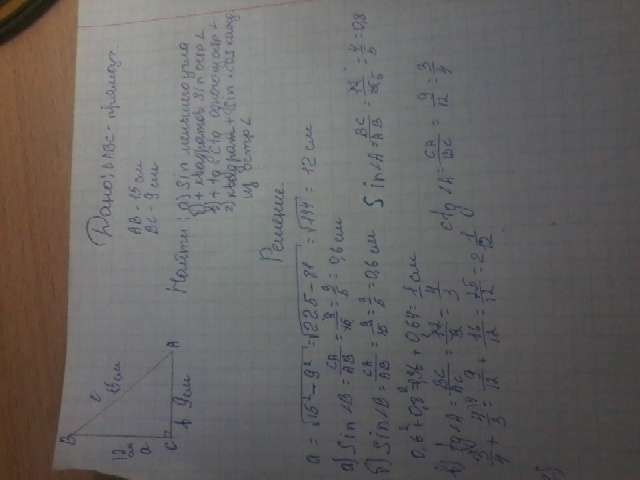 Дано: ΔABC - прямоуг.
AB = 15 см
BC = 9 см
Найти: а) Sin меньшего угла
б) + квадратов Sin остр ∠
в) + tg и ctg одного остр ∠
г) квадрат + Sin
из остр ∠
B
c
15 см
12 см
a
C
b 9 см
A
Решение
a = √15² - 9² = √225 - 81 = √144 = 12 см
а) Sin ∠B = CA/AB = 9/15 = 3/5 = 0,6 см
б) Sin ∠B = CA/AB = 9/15 = 3/5 = 0,6 см Sin ∠A = BC/AB = 12/15 = 4/5 = 0,8
0,6² + 0,8² = 0,36 + 0,64 = 1 см
в) tg ∠A = BC/AC = 12/9 = 4/3 ctg ∠A = CA/BC = 9/12 = 3/4
3/4 + 4/3 = 9/12 + 16/12 = 25/12 = 2 1/12